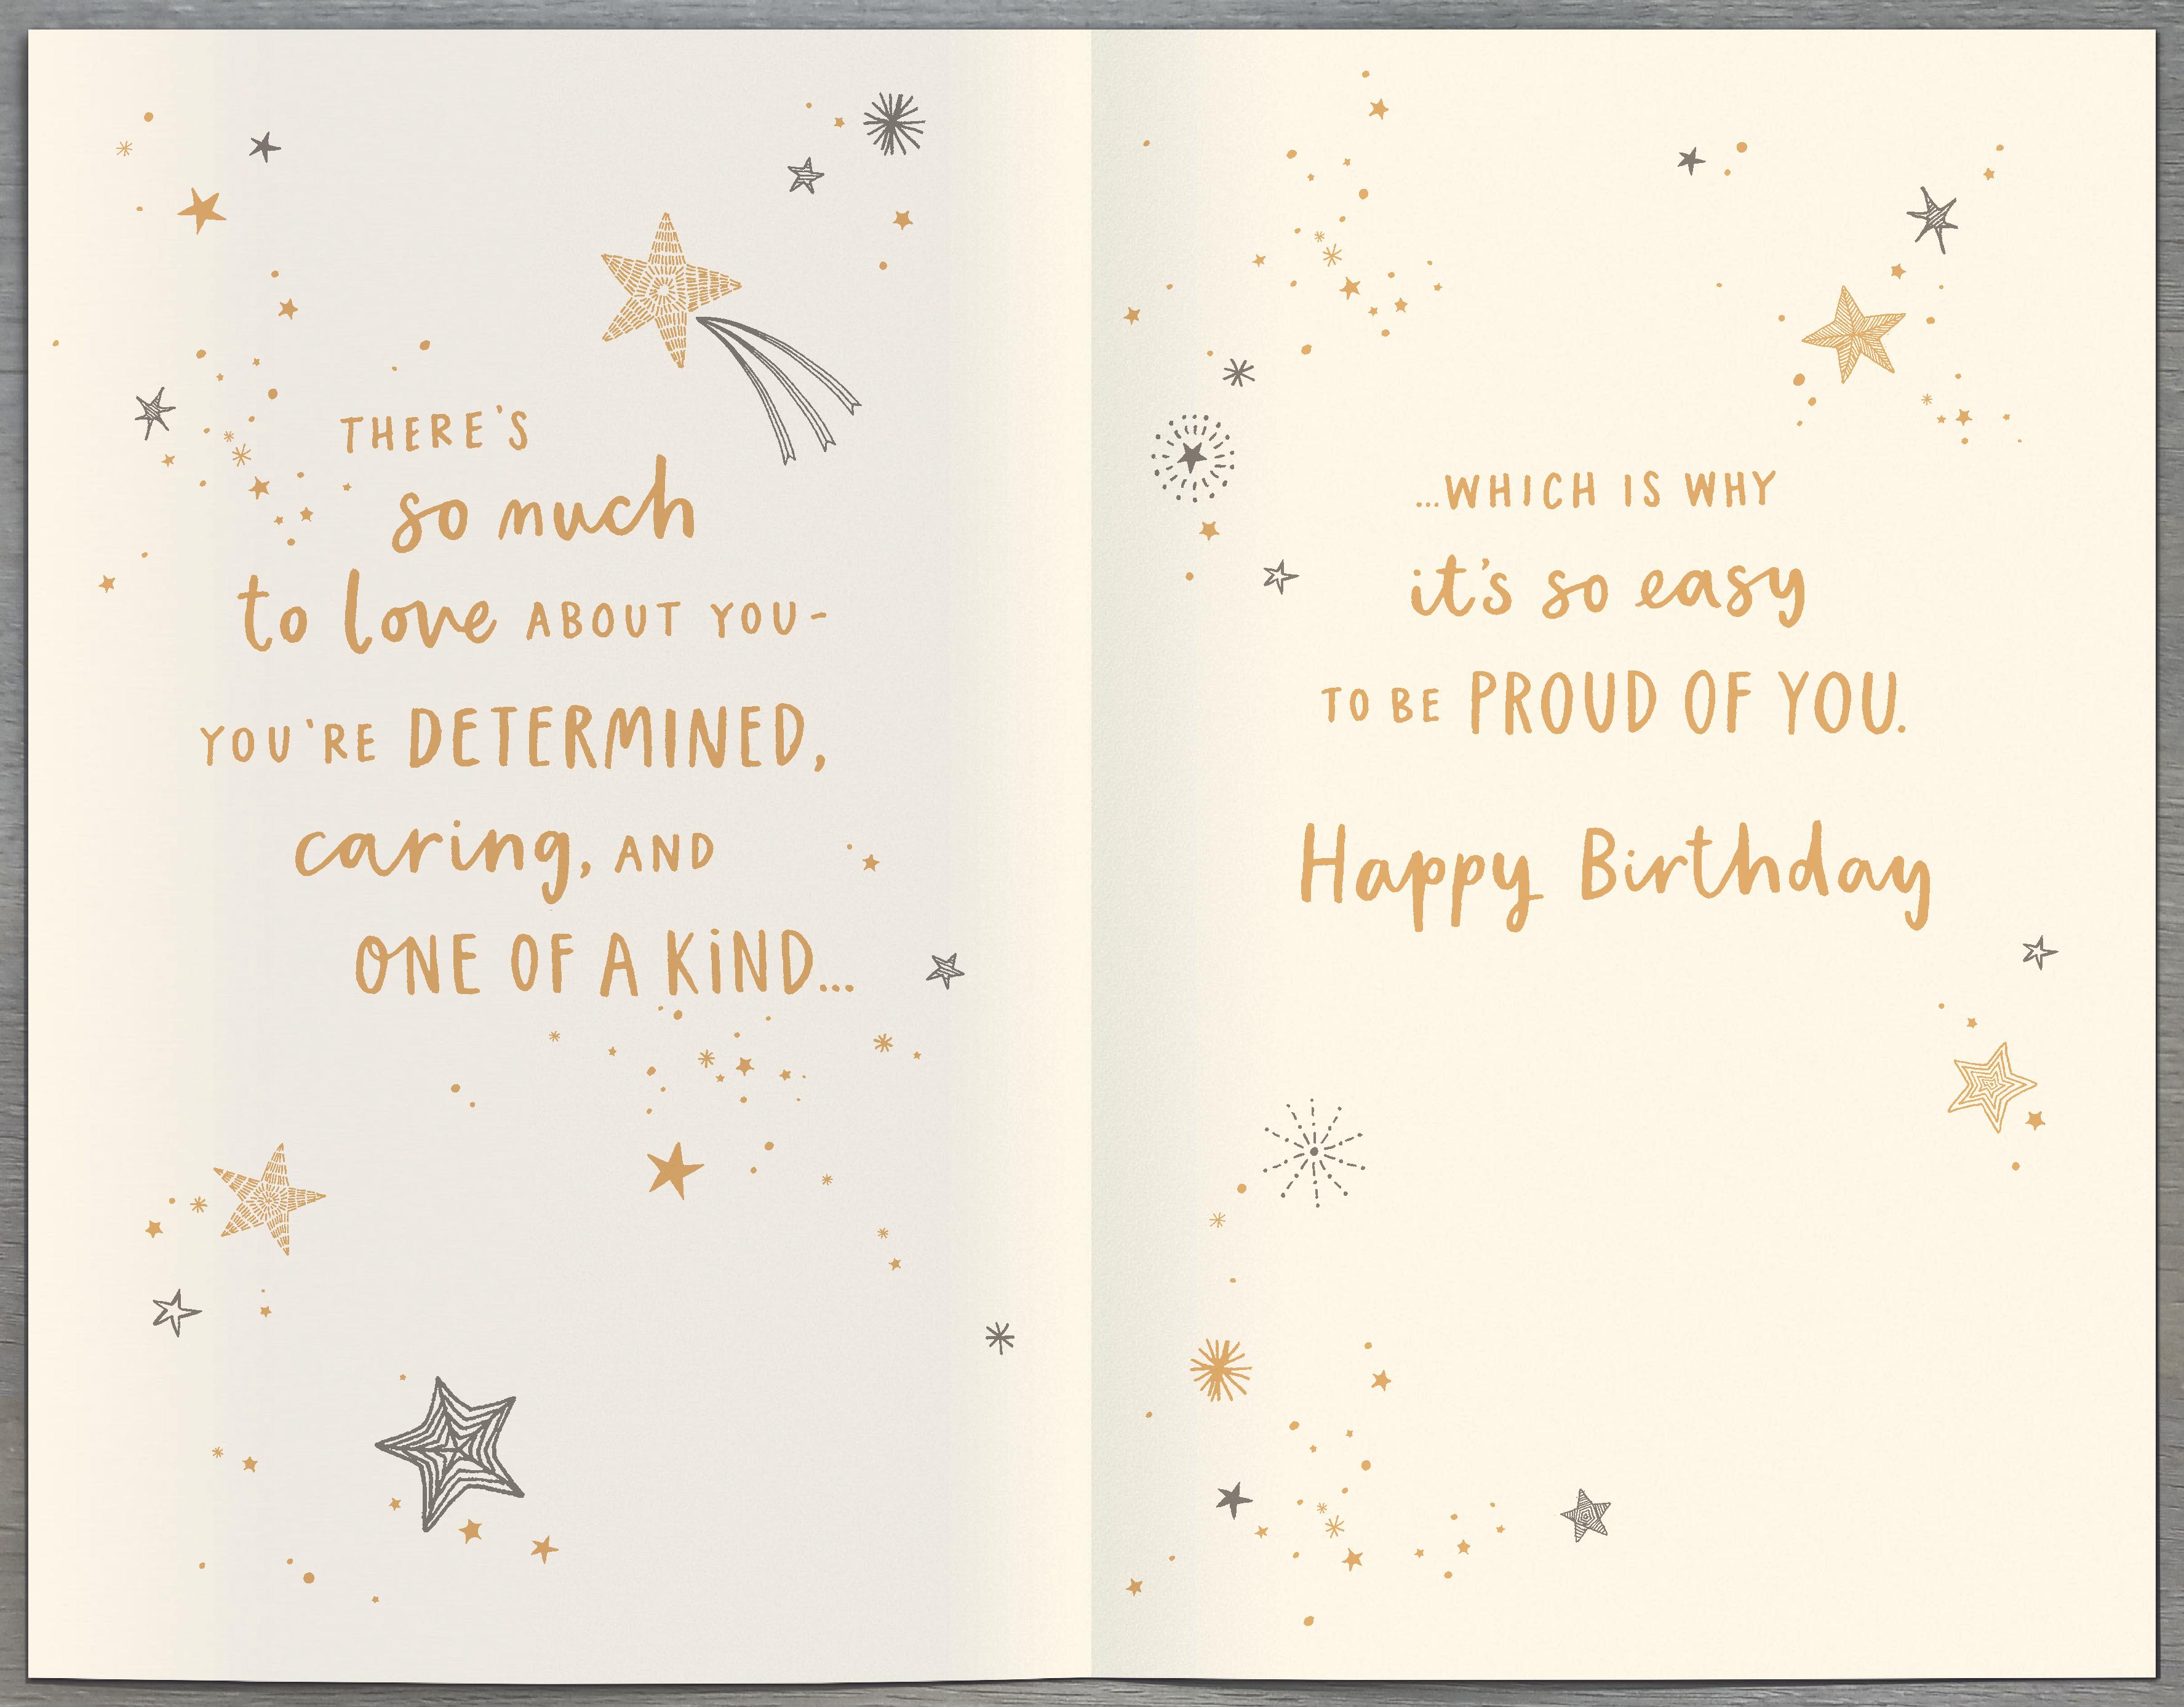 THERE'S
so much
to love ABOUT YOU-
YOU'RE DETERMINED,
caring, AND
ONE OF A KIND...
...WHICH IS WHY
it's so easy
TO BE PROUD OF YOU.
Happy Birthday